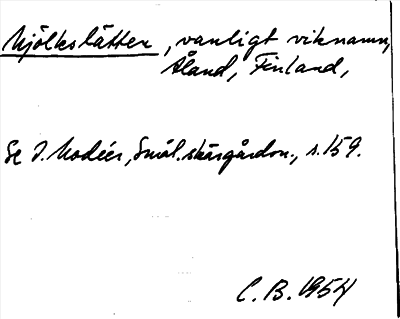 Mjölkslätten, vanligt viknamn,
Åland, Finland,
Se I. Modéer, Smål. skärgårdsn., s. 159.
C. B. 1954